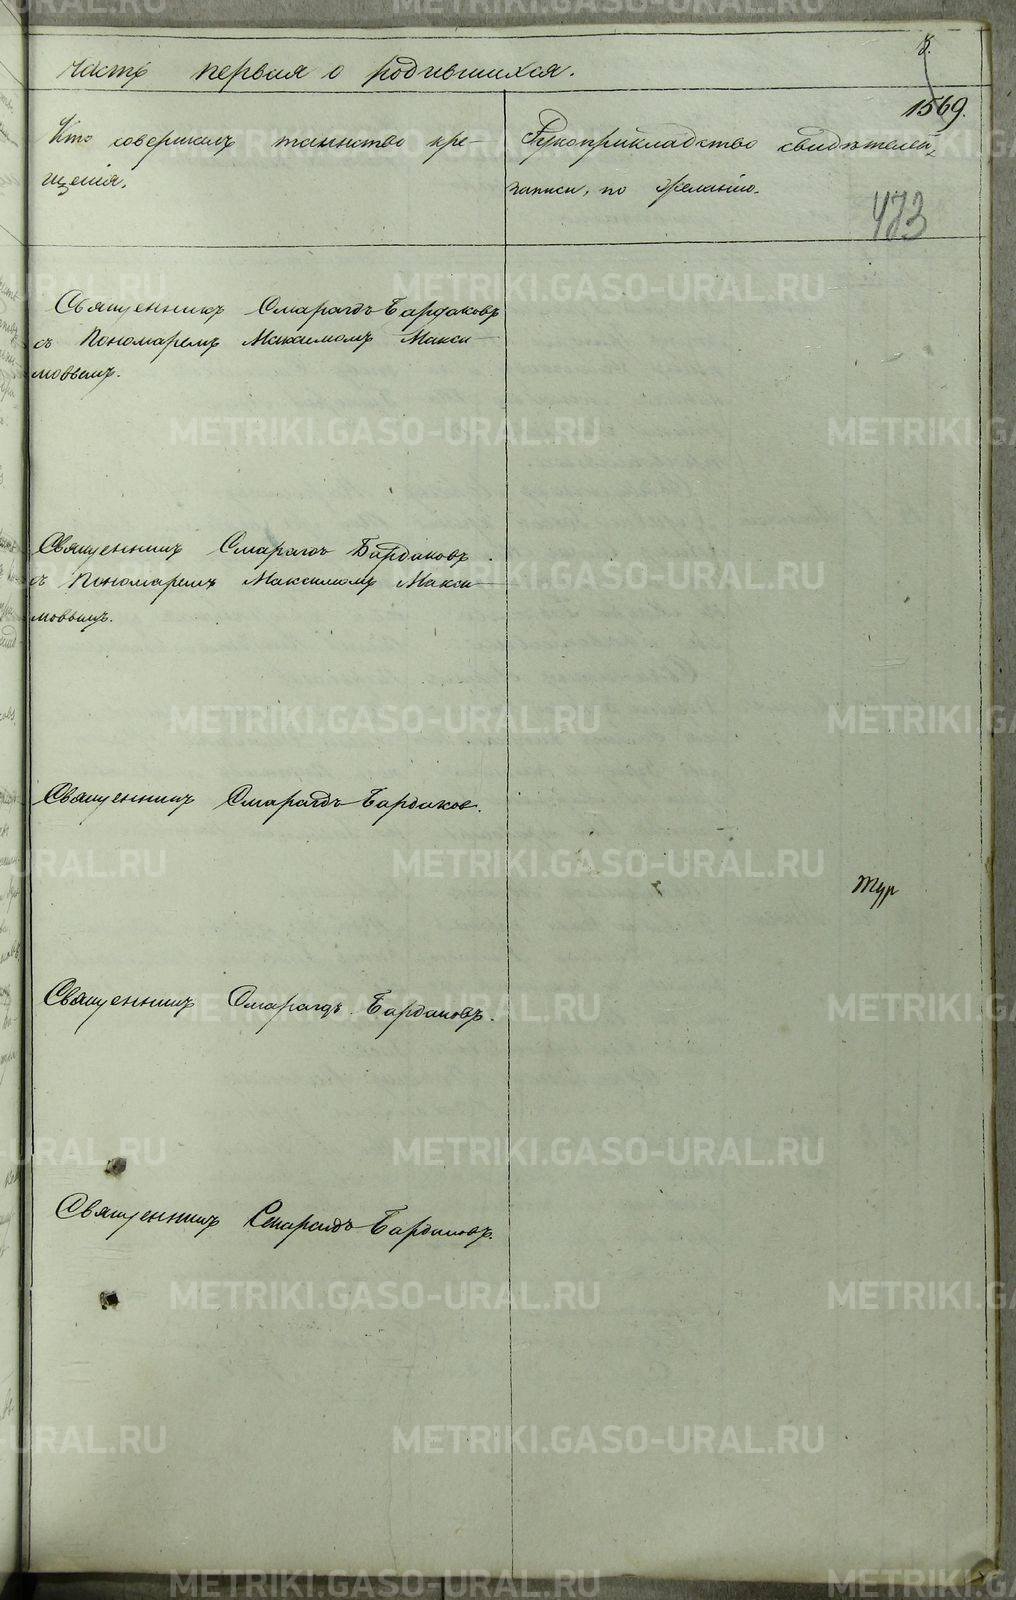 3.
часть первая о родившихся.
1569.
Кто совершалъ таинство кре-
щенія.
Рукоприкладство свидѣтелей
записи, по желанію.
473
Священникъ Смарагдъ Бардаковъ
съ Пономаремъ Максимомъ Макси-
мовымъ.
Священникъ Смарагдъ Бардаковъ
съ Пономаремъ Максимомъ Макси-
мовымъ.
Священникъ Смарагдъ Бардаков.
Жур
Священникъ Смарагдъ Бардаковъ.
Священникъ Смарагдъ Бардаковъ.
METRIKI.GASO-URAL.RU